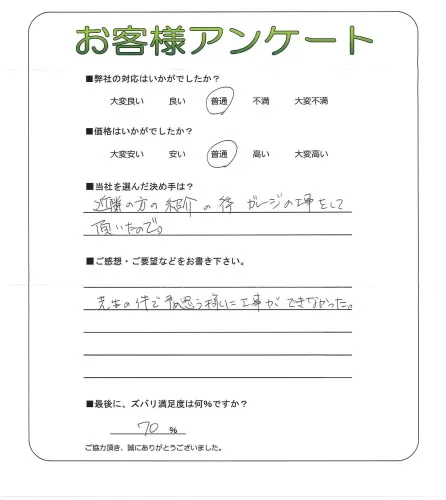 お客様アンケート
■弊社の対応はいかがでしたか？
大変良い 良い 普通 不満 大変不満
■価格はいかがでしたか？
大変安い 安い 普通 高い 大変高い
■当社を選んだ決め手は？
近隣の方の紹介の後 ガレージの工事をして
頂いたので。
■ご感想・ご要望などをお書き下さい。
の件で 思う様に工事が できなかった。
■最後に、ズバリ満足度は何%ですか？
70 %
ご協力頂き、誠にありがとうございました。